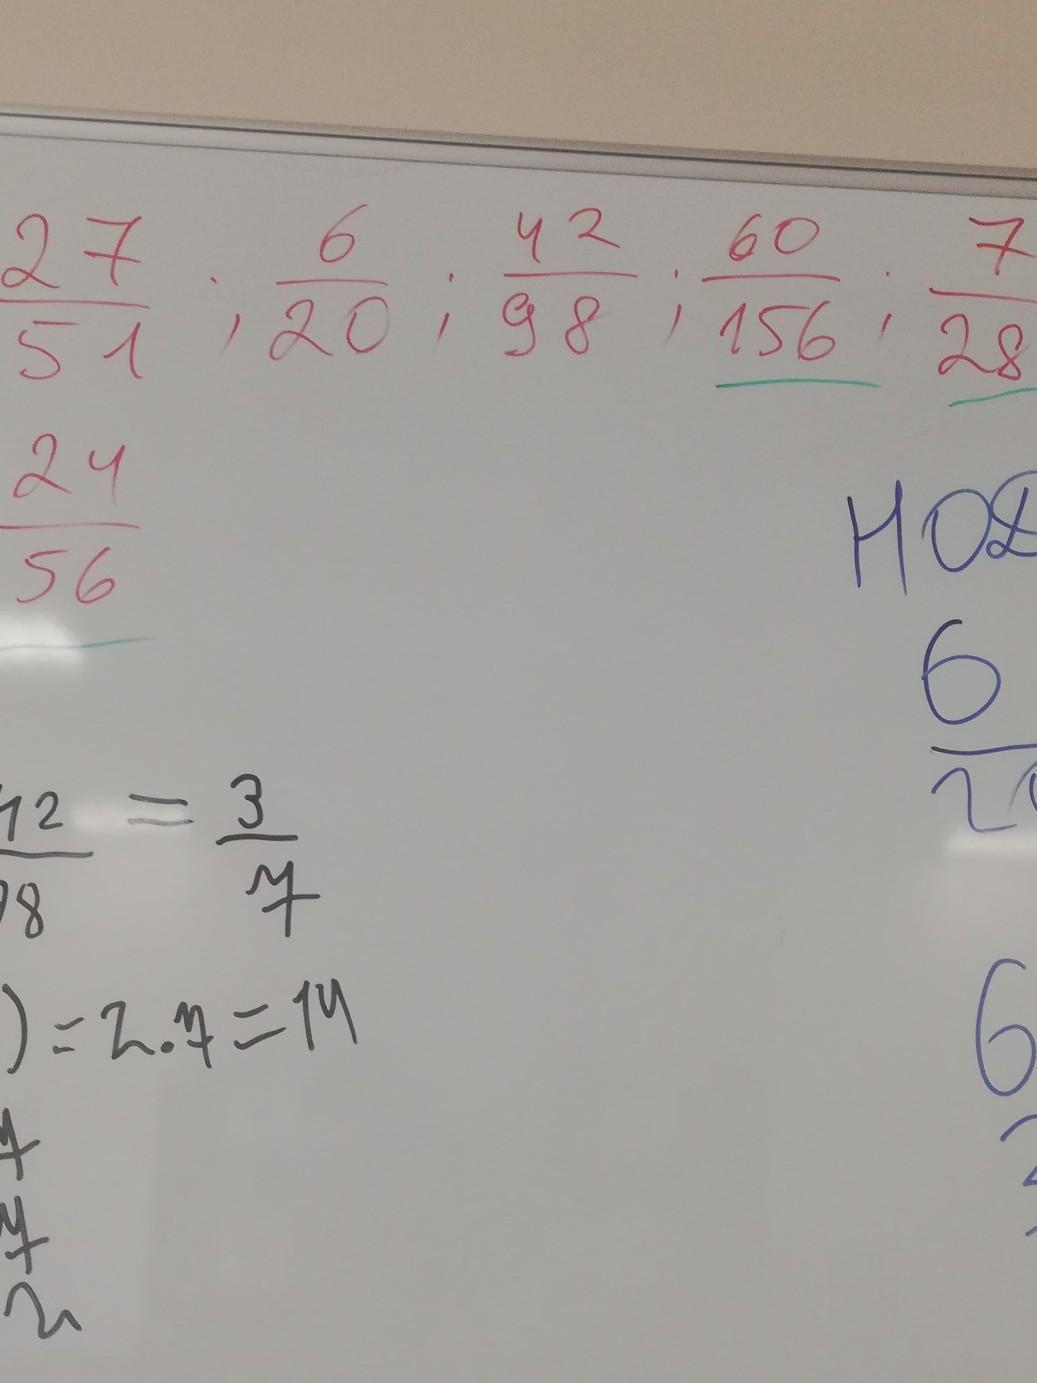 27/51 ; 6/20 ; 42/98 ; 60/156 ; 7/28
24/56
НОД
6
42/98 = 3/7
) = 2.7 = 14
6
7
7
2